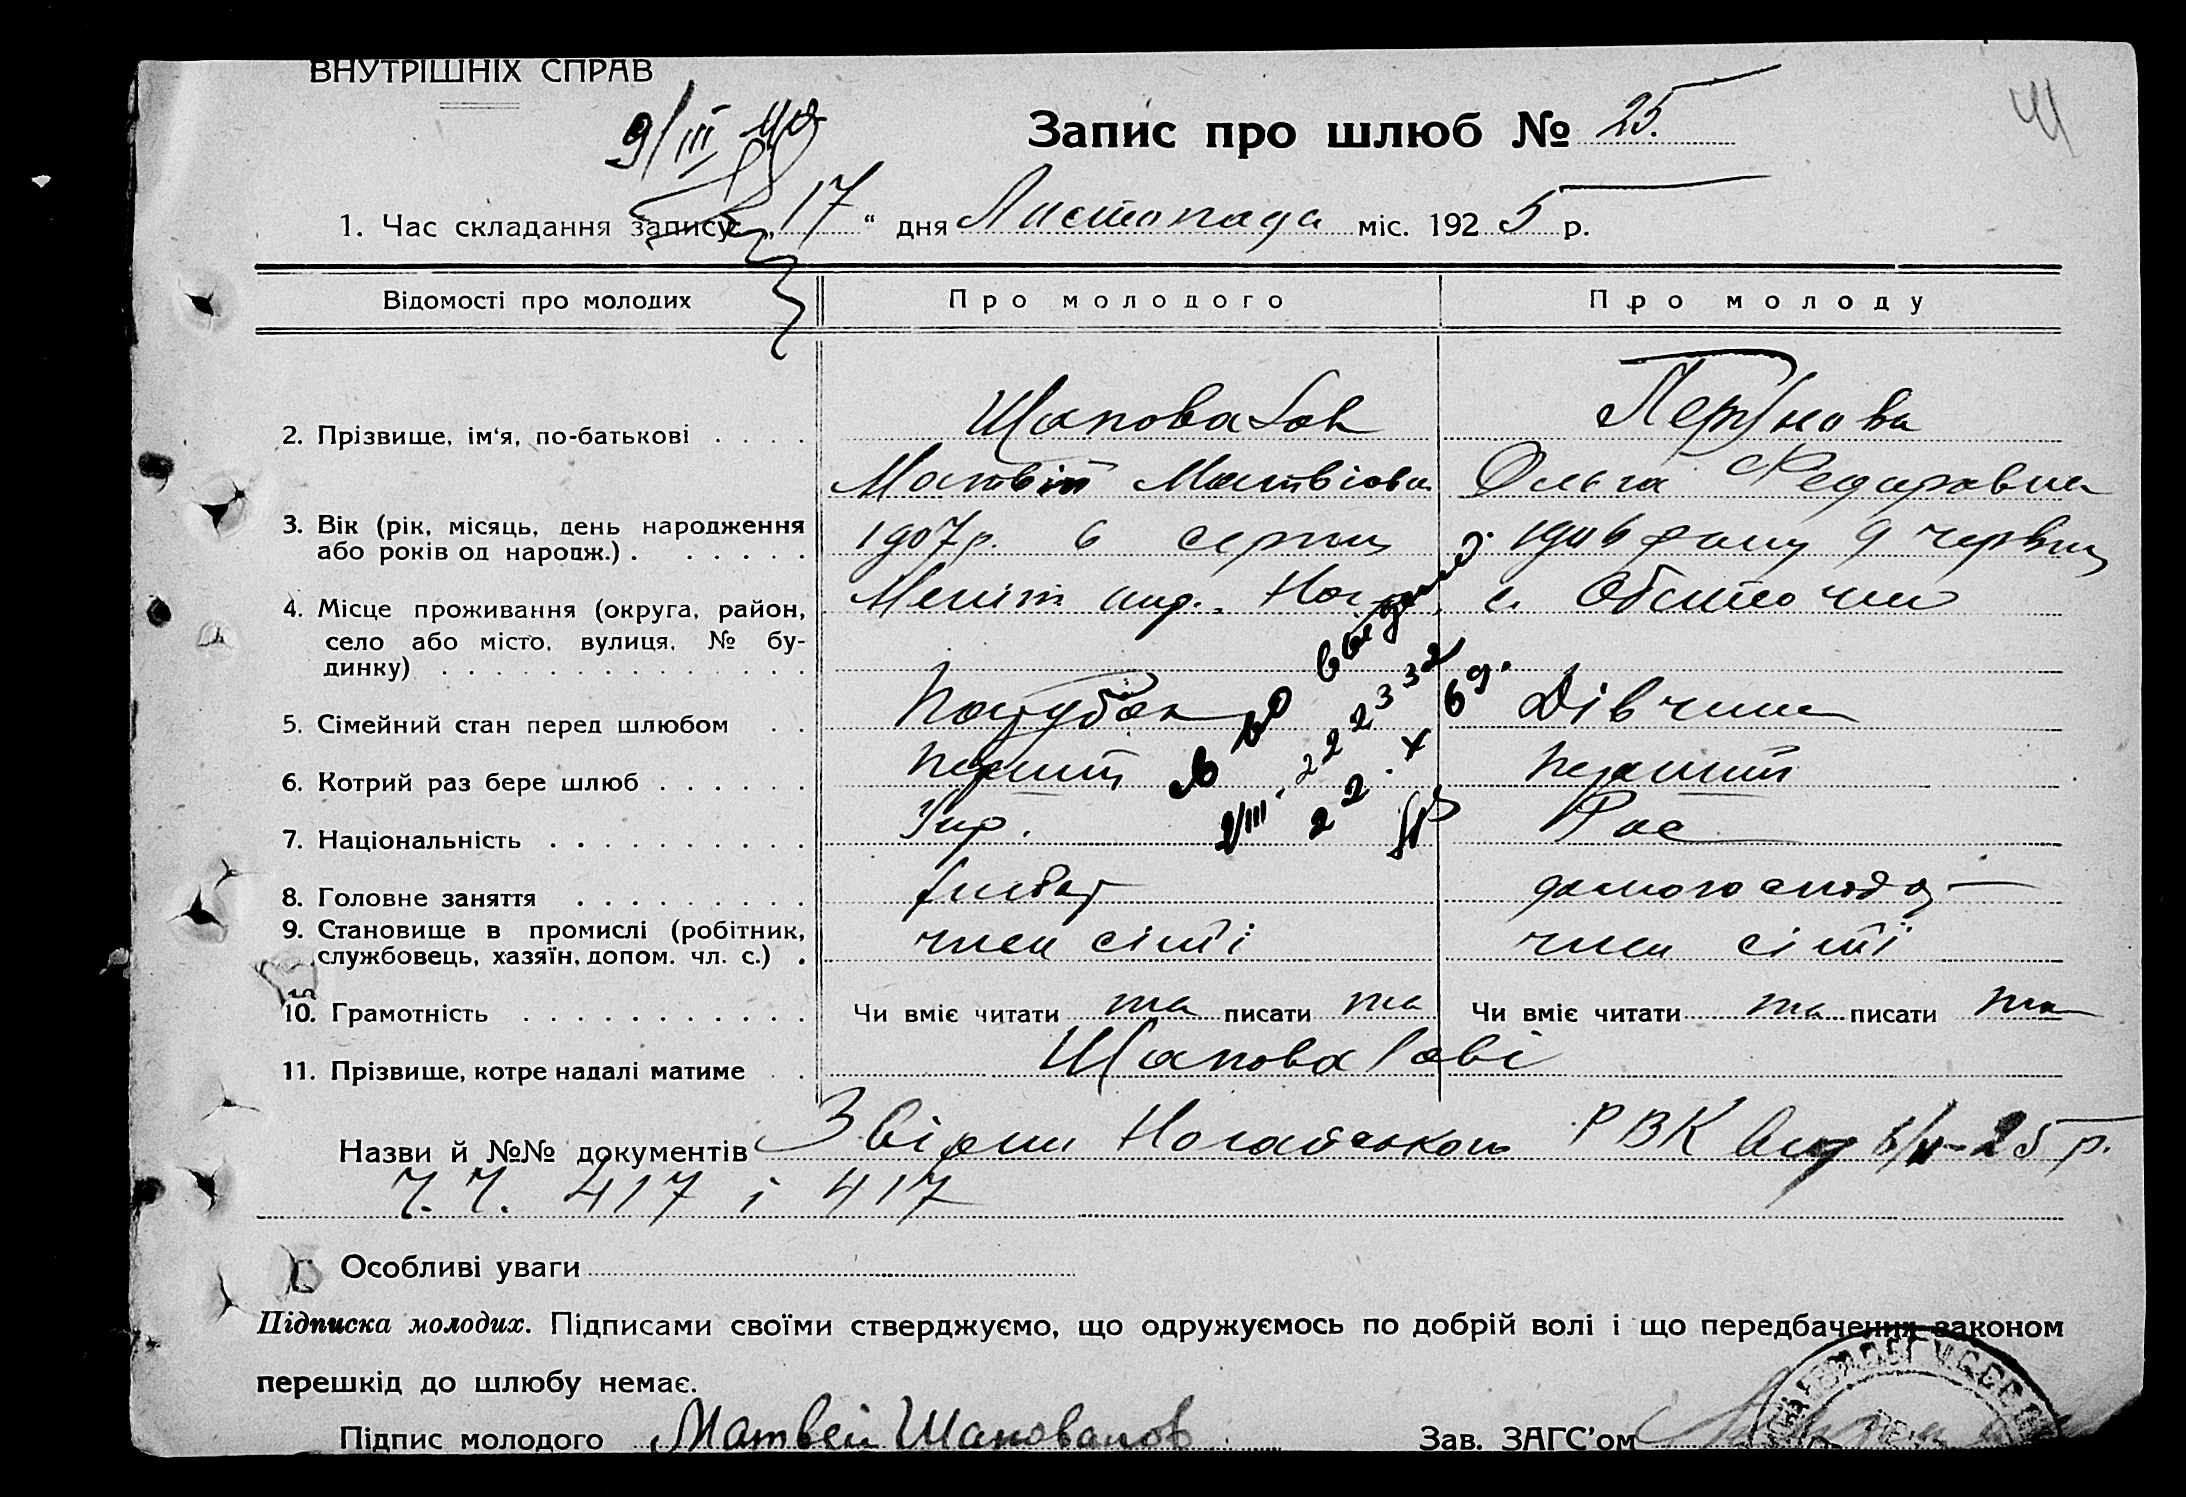 ВНУТРІШНІХ СПРАВ
9/III
Запис про шлюб № 25.
1. Час складання запису „17“ дня Листопада міс. 1925 р.
Відомості про молодих Про молодого Про молоду
2. Прізвище, ім'я, по-батькові . . . . Шаповалов
Матвій Матвієва Ольга Федаравна
3. Вік (рік, місяць, день народження
або років од народж.) . . . . . . 1907 р. 6 серпня 1906 9 червня
4. Місце проживання (округа, район, Меліт. с. Обиточна
село або місто, вулиця, № бу-
динку) . . . . . . . . . . . . . .
5. Сімейний стан перед шлюбом . . Парубок Дівчина
6. Котрий раз бере шлюб . . . . . . перший перший
7. Національність . . . . . . . . . . Укр. Рос
8. Головне заняття . . . . . . . . .
9. Становище в промислі (робітник,
службовець, хазяїн, допом. чл. с.) . член сімї член сімї
10. Грамотність . . . . . . . . . . . Чи вміє читати та писати та Чи вміє читати та писати та
11. Прізвище, котре надалі матиме . . Шаповалові
Назви й №№ документів Ногайського РВК 25 р.
Ч.Ч. 417 і 417
Особливі уваги
Підписка молодих. Підписами своїми стверджуємо, що одружуємось по добрій волі і що передбачених законом
перешкід до шлюбу немає.
Підпис молодого Матвей Шаповалов Зав. ЗАГС'ом